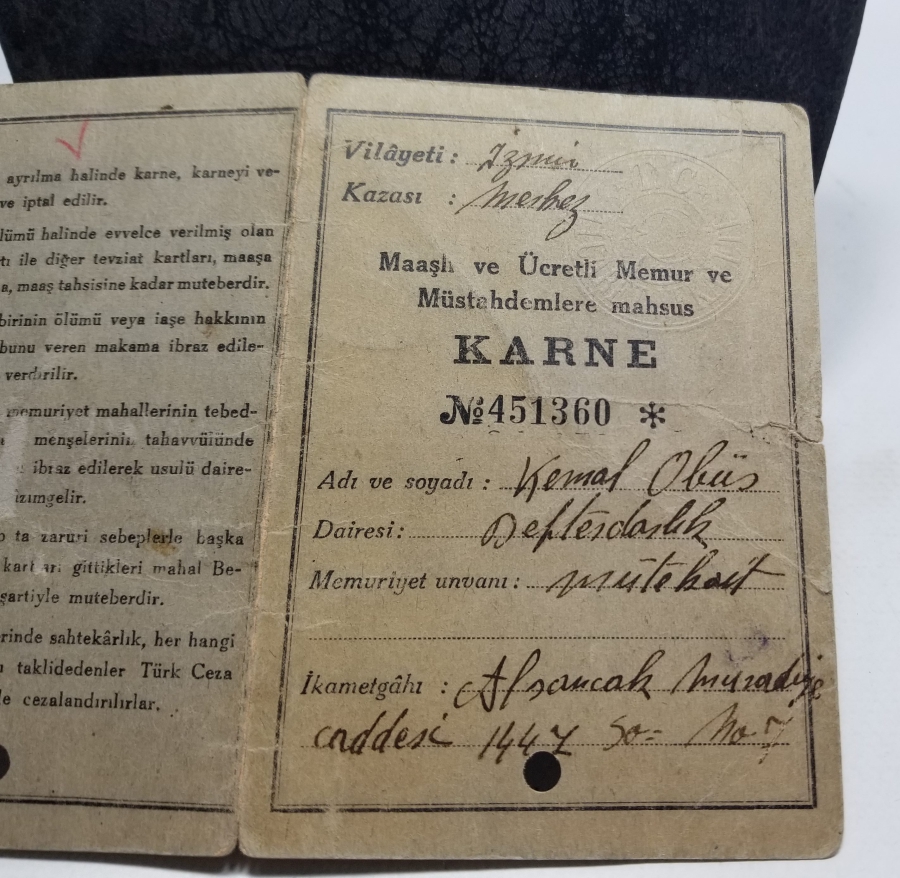 ayrılma halinde karne, karneyi ve-
ve iptal edilir.
lümü halinde evvelce verilmiş olan
tı ile diğer tevziat kartları, maaşa
a, maaş tahsisine kadar muteberdir.
birinin ölümü veya iaşe hakkının
bunu veren makama ibraz edile-
verdirilir.
memuriyet mahallerinin tebed-
menşelerinin tahavvülünde
ibraz edilerek usulü daire-
izımgelir.
ta zaruri sebeplerle başka
kartları gittikleri mahal Be-
şartiyle muteberdir.
rinde sahtekârlık, her hangi
taklidedenler Türk Ceza
le cezalandırılırlar.
Vilâyeti : İzmir
Kazası : Merkez
Maaşlı ve Ücretli Memur ve
Müstahdemlere mahsus
KARNE
№ 451360 *
Adı ve soyadı : Kemal Obüs
Dairesi: Defterdarlık
Memuriyet unvanı : mütekait
İkametgâhı : Alsancak Muradiye
caddesi 1447 So= No 7